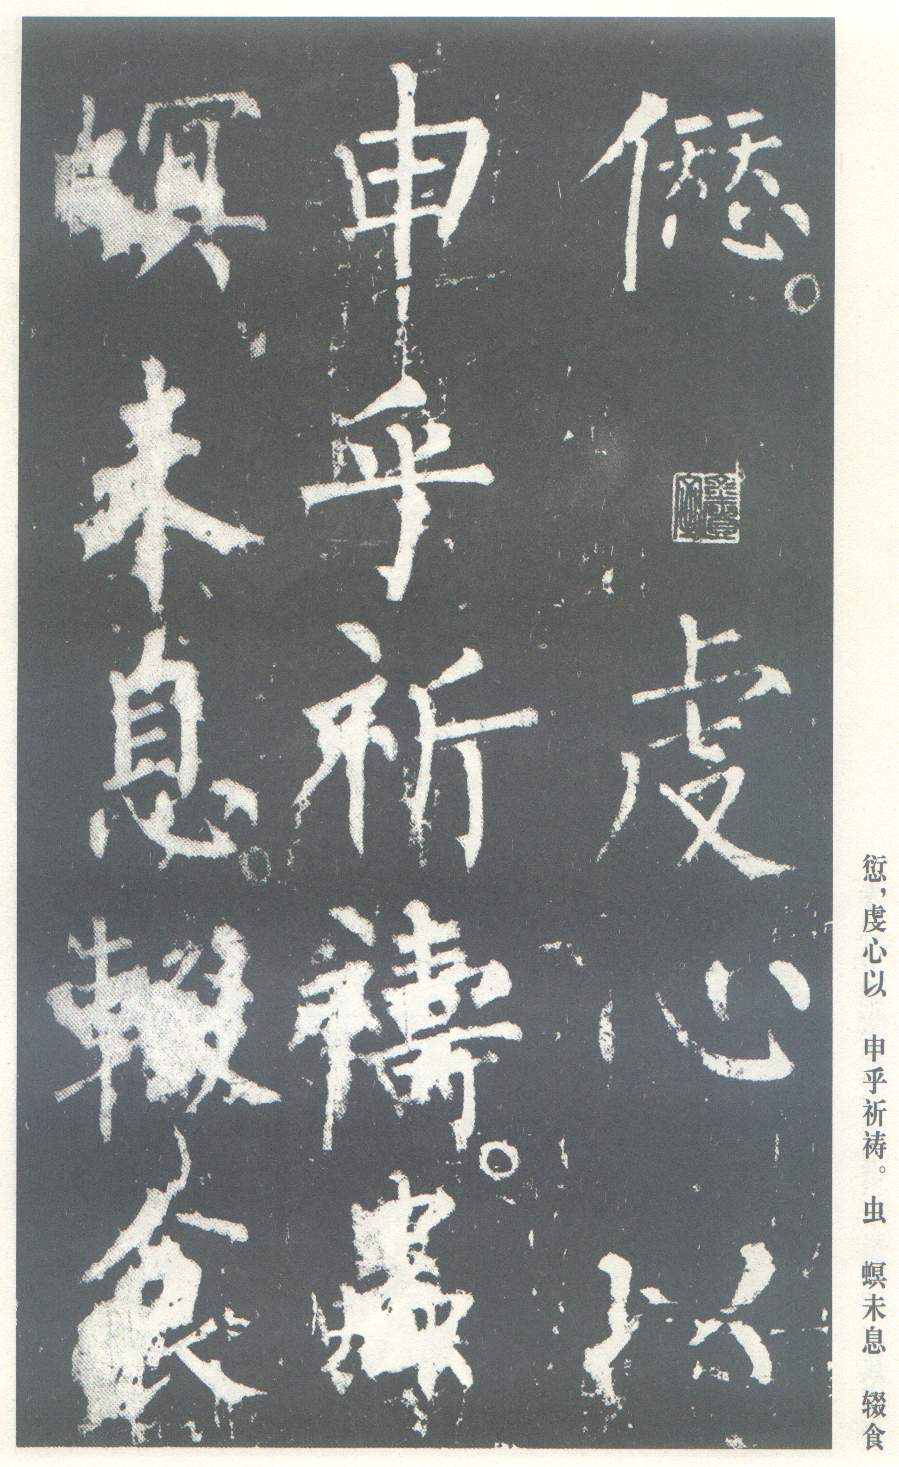 愆。虔心以
申乎祈禱。蟲
螟未息。輟食
愆，虔心以 申乎祈祷。虫 螟未息 辍食